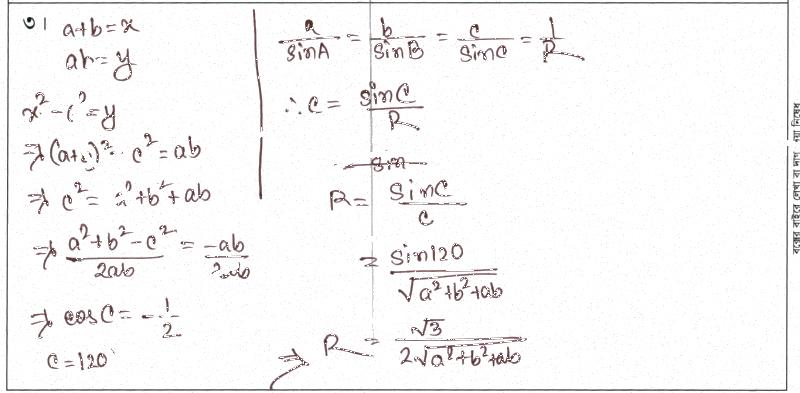 ৩। a+b=x
ab=y
x²-c²=y
⇒(a+b)²-c²=ab
⇒ c²= a²+b²+ab
⇒ (a²+b²-c²)/2ab = -ab/2ab
⇒ cosC = -1/2
C=120°
a/sinA = b/sinB = c/sinC = 1/R
∴ c = sinC/R
sin
R = sinC/c
= sin120/√(a²+b²+ab)
R = √3/2√(a²+b²+ab)
বক্সের বাইরে লেখা বা দাগ
য়া নিষেধ